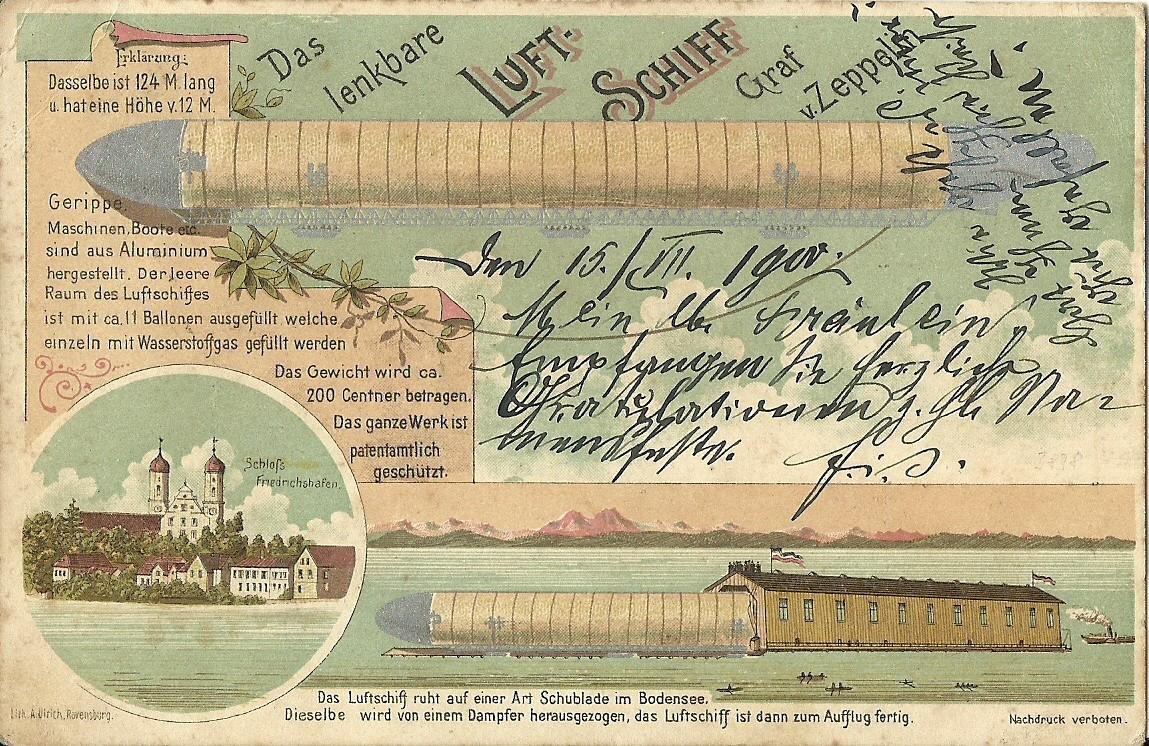 Das lenkbare LUFT-SCHIFF Graf v. Zeppelin
Erklärung:
Dasselbe ist 124 M. lang
u. hat eine Höhe v. 12 M.
Gerippe,
Maschinen, Boote etc.
sind aus Aluminium
hergestellt. Der leere
Raum des Luftschiffes
ist mit ca. 11 Ballonen ausgefüllt welche
einzeln mit Wasserstoffgas gefüllt werden
Das Gewicht wird ca.
200 Centner betragen.
Das ganze Werk ist
patentamtlich
geschützt.
Den 15./VII. 1900.
Mein lb. Fräulein,
Empfangen Sie herzliche
Gratulationen z. hl. Na-
mensfeste.
Schloß
Friedrichshafen.
Das Luftschiff ruht auf einer Art Schublade im Bodensee.
Dieselbe wird von einem Dampfer herausgezogen, das Luftschiff ist dann zum Aufflug fertig.
Lith. A. Ulrich, Ravensburg.
Nachdruck verboten.